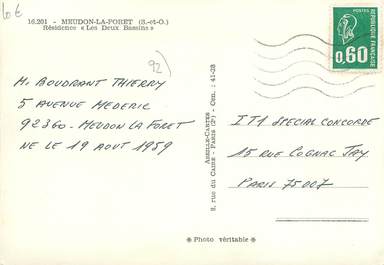 10 €
16.201 - MEUDON-LA-FORET (S.-et-O.)
Résidence « Les Deux Bassins »
92)
M. BOUDRANT THIERRY
5 AVENUE MEDERIC
92360 - MEUDON LA FORET
NE LE 19 AOUT 1959
ABEILLE-CARTES
8, rue du CAIRE - PARIS (2e) - Cen. : 41-28
POSTES
REPUBLIQUE FRANÇAISE
0,60
IT1 SPECIAL CONCORDE
15 RUE COGNAC JAY
PARIS 75007
Photo véritable